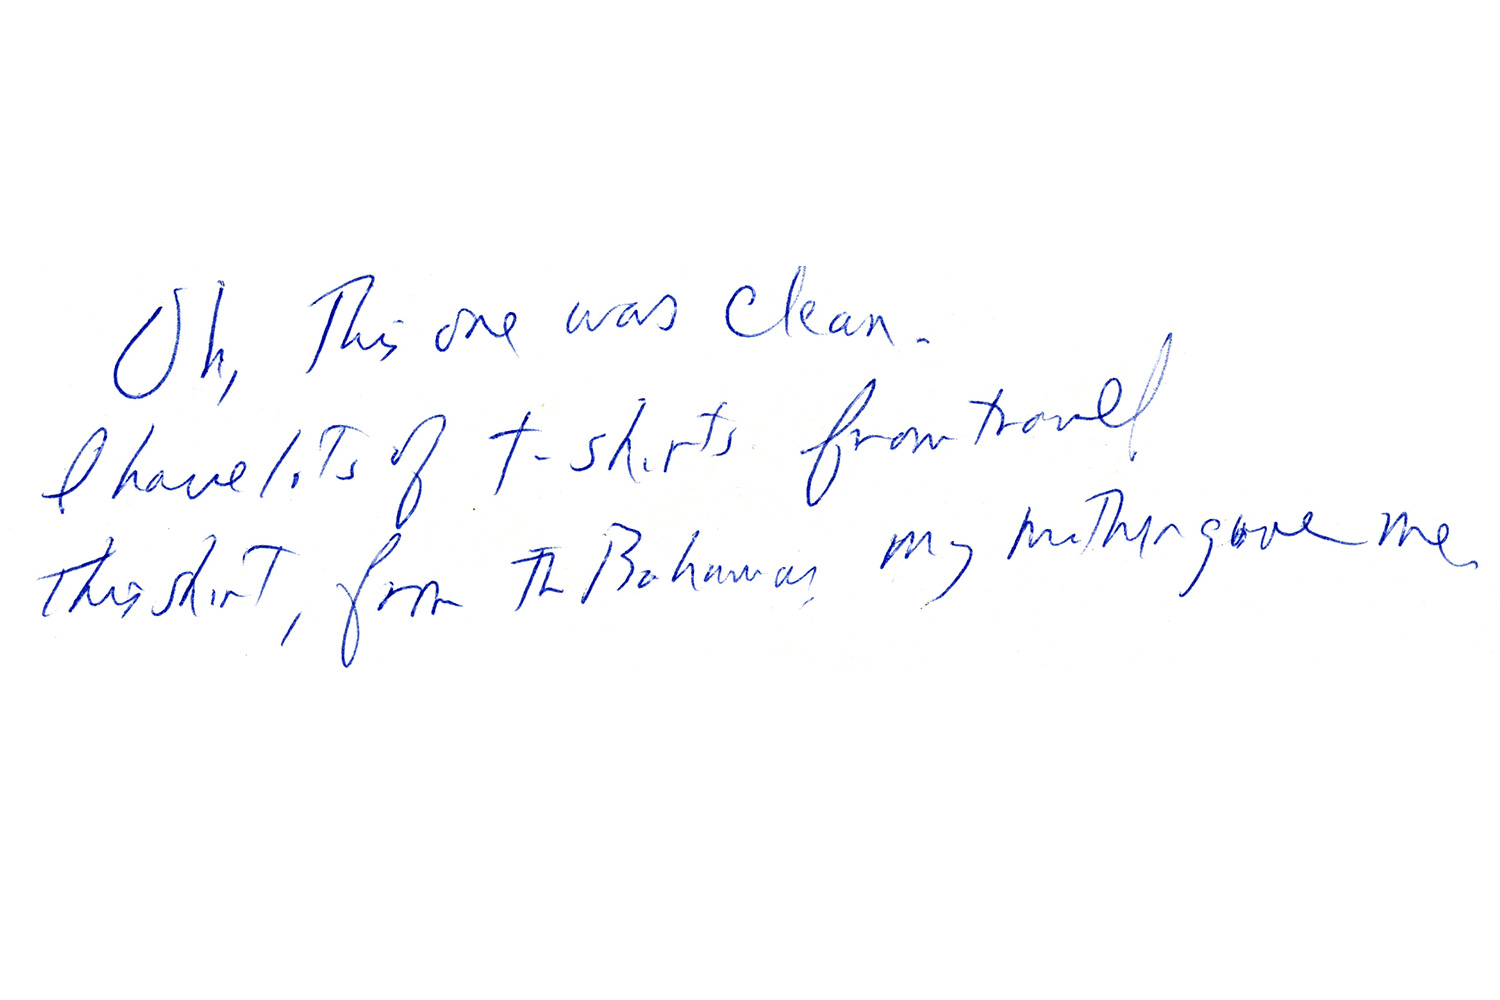 Oh, This one was clean.
I have lots of t-shirts from travel
This shirt, from the Bahamas, my mother gave me.